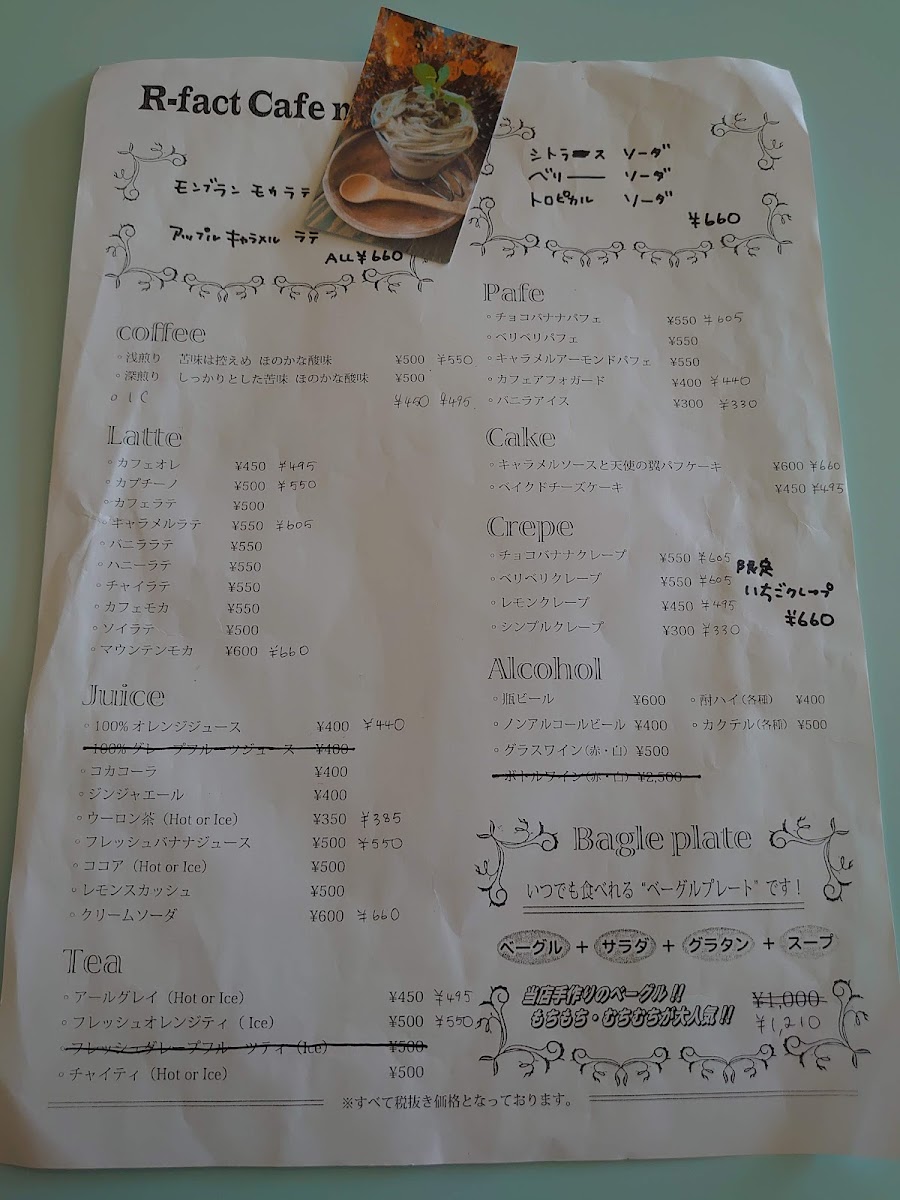 R-fact Cafe
モンブラン モカラテ
アップルキャラメル ラテ
ALL ¥660
シトラース ソーダ
ベリー ソーダ
トロピカル ソーダ
¥660
coffee
◦浅煎り 苦味は控えめ ほのかな酸味 ¥500 ¥550
◦深煎り しっかりとした苦味 ほのかな酸味 ¥500
◦ I C ¥450 ¥495
Latte
◦カフェオレ ¥450 ¥495
◦カプチーノ ¥500 ¥550
◦カフェラテ ¥500
◦キャラメルラテ ¥550 ¥605
◦バニララテ ¥550
◦ハニーラテ ¥550
◦チャイラテ ¥550
◦カフェモカ ¥550
◦ソイラテ ¥500
◦マウンテンモカ ¥600 ¥660
Juice
◦100% オレンジジュース ¥400 ¥440
100% グレープフルーツジュース ¥400
◦コカコーラ ¥400
◦ジンジャエール ¥400
◦ウーロン茶 (Hot or Ice) ¥350 ¥385
◦フレッシュバナナジュース ¥500 ¥550
◦ココア (Hot or Ice) ¥500
◦レモンスカッシュ ¥500
◦クリームソーダ ¥600 ¥660
Tea
◦アールグレイ (Hot or Ice) ¥450 ¥495
◦フレッシュオレンジティ ( Ice) ¥500 ¥550
フレッシュグレープフルーツティ (Ice) ¥500
◦チャイティ (Hot or Ice) ¥500
Pafe
◦チョコバナナパフェ ¥550 ¥605
◦ベリベリパフェ ¥550
◦キャラメルアーモンドパフェ ¥550
◦カフェアフォガード ¥400 ¥440
◦バニラアイス ¥300 ¥330
Cake
◦キャラメルソースと天使の翼パフケーキ ¥600 ¥660
◦ベイクドチーズケーキ ¥450 ¥495
Crepe
◦チョコバナナクレープ ¥550 ¥605
◦ベリベリクレープ ¥550 ¥605
◦レモンクレープ ¥450 ¥495
◦シンプルクレープ ¥300 ¥330
限定
いちごクレープ
¥660
Alcohol
◦瓶ビール ¥600 ◦酎ハイ (各種) ¥400
◦ノンアルコールビール ¥400 ◦カクテル (各種) ¥500
◦グラスワイン (赤・白) ¥500
ボトルワイン (赤・白) ¥2,500
Bagle plate
いつでも食べれる "ベーグルプレート" です!
ベーグル + サラダ + グラタン + スープ
当店手作りのベーグル!!
もちもち・むちむちが大人気!!
¥1,000
¥1,210
※すべて税抜き価格となっております。